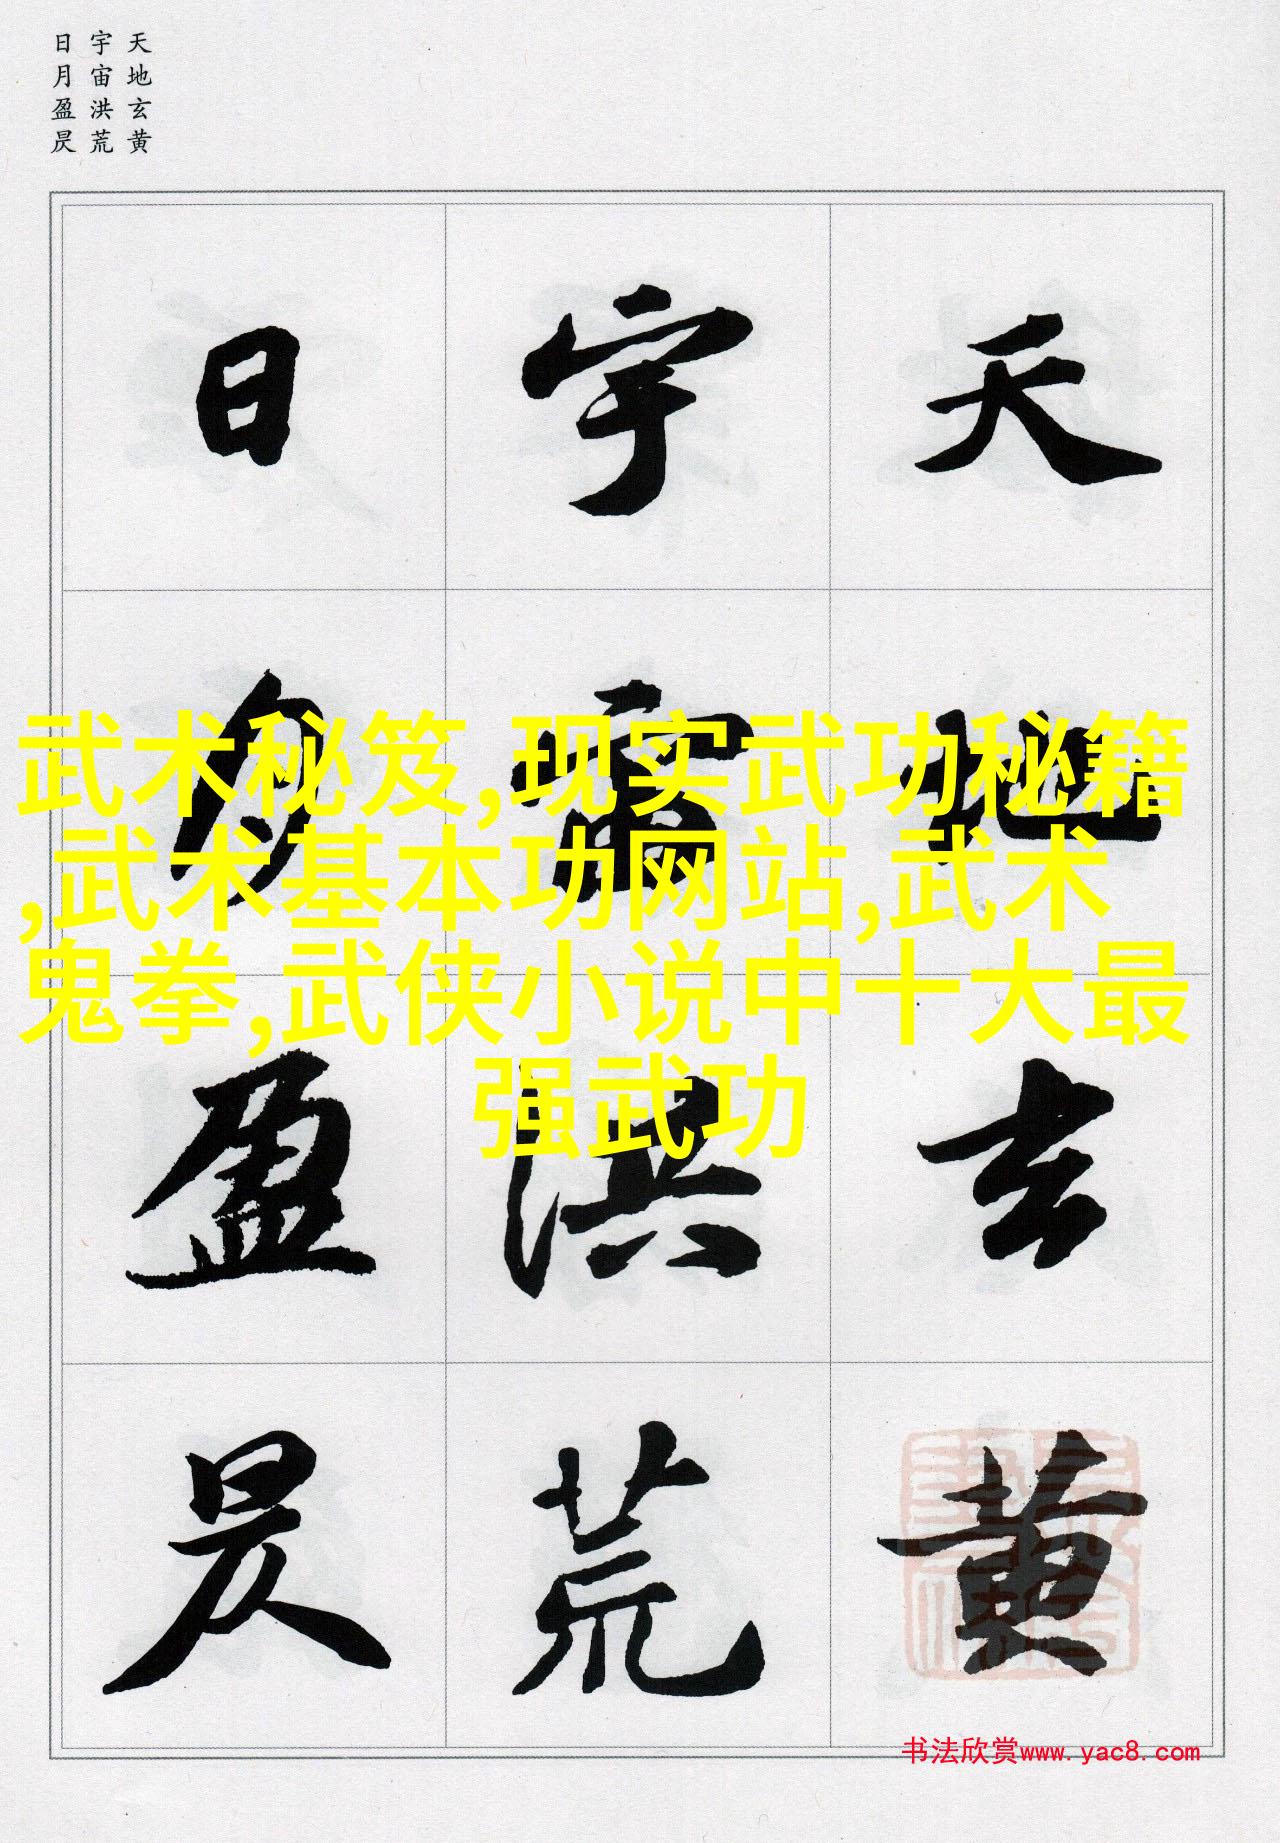 天地玄黄
宇宙洪荒
日月盈昃
天地玄黄
宇宙洪荒
日月盈昃
武术秘笈,现实武功秘籍
,武术基本功网站,武术
鬼拳,武侠小说中十大最
强武功
书法欣赏www.yac8.com